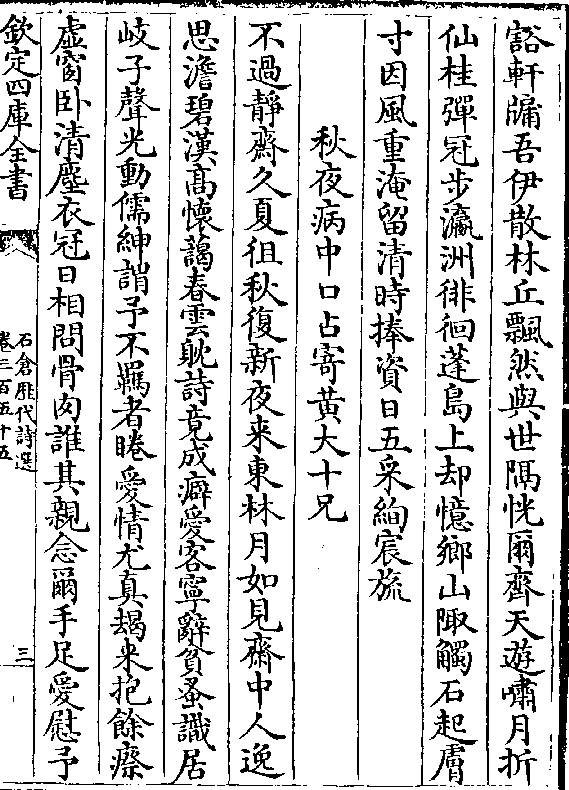 豁軒牖吾伊散林丘飄然與世隅恍爾齊天遊嘯月折
仙桂彈冠步瀛洲徘徊蓬島上却憶鄉山陬觸石起膚
寸因風重淹留清時捧資日五采絢宸旒
秋夜病中口占寄黃大十兄
不過靜齋久夏徂秋復新夜来東林月如見齋中人逸
思澹碧漢高懷藹春雲耽詩竟成癖愛客寧辭貧蚤識居
岐子聲光動儒紳謂予不羈者睠愛情尤真朅来抱餘瘵
虛窗卧清塵衣冠日相問骨肉誰其親念爾手足愛慰予
欽定四庫全書
石倉歷代詩選
卷三百五十五
三